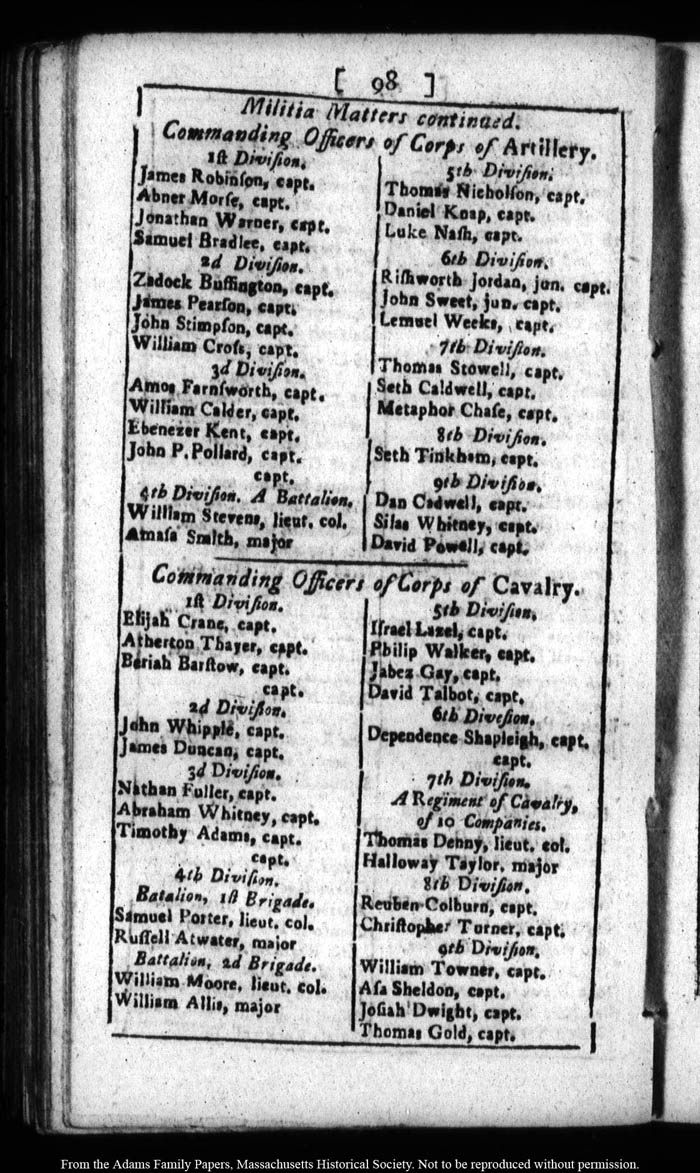 [ 98 ]
Militia Matters continued.
Commanding Officers of Corps of Artillery.
1ſt Diviſion.
James Robinſon, capt.
Abner Morſe, capt.
Jonathan Warner, capt.
Samuel Bradlee, capt.
2d Diviſion.
Zadock Buffington, capt.
James Pearſon, capt.
John Stimpſon, capt.
William Croſs, capt.
3d Diviſion.
Amos Farnſworth, capt.
William Calder, capt.
Ebenezer Kent, capt.
John P. Pollard, capt.
capt.
4th Diviſion. A Battalion.
William Stevens, lieut. col.
Amaſa Smith, major
5th Diviſion.
Thomas Nicholſon, capt.
Daniel Knap, capt.
Luke Naſh, capt.
6th Diviſion.
Riſhworth Jordan, jun. capt.
John Sweet, jun. capt.
Lemuel Weeks, capt.
7th Diviſion.
Thomas Stowell, capt.
Seth Caldwell, capt.
Metaphor Chaſe, capt.
8th Diviſion.
Seth Tinkham, capt.
9th Diviſion.
Dan Cadwell, capt.
Silas Whitney, capt.
David Powell, capt.
Commanding Officers of Corps of Cavalry.
1ſt Diviſion.
Elijah Crane, capt.
Atherton Thayer, capt.
Beriah Barſtow, capt.
capt.
2d Diviſion.
John Whipple, capt.
James Duncan, capt.
3d Diviſion.
Nathan Fuller, capt.
Abraham Whitney, capt.
Timothy Adams, capt.
capt.
4th Diviſion.
Batalion, 1ſt Brigade.
Samuel Porter, lieut. col.
Ruſſell Atwater, major
Battalion, 2d Brigade.
William Moore, lieut. col.
William Allis, major
5th Diviſion.
Iſrael Lazel, capt.
Philip Walker, capt.
Jabez Gay, capt.
David Talbot, capt.
6th Diveſion.
Dependence Shapleigh, capt.
capt.
7th Diviſion.
A Regiment of Cavalry,
of 10 Companies.
Thomas Denny, lieut. col.
Halloway Taylor, major
8th Diviſion.
Reuben Colburn, capt.
Chriſtopher Turner, capt.
9th Diviſion.
William Towner, capt.
Aſa Sheldon, capt.
Joſiah Dwight, capt.
Thomas Gold, capt.
From the Adams Family Papers, Massachusetts Historical Society. Not to be reproduced without permission.